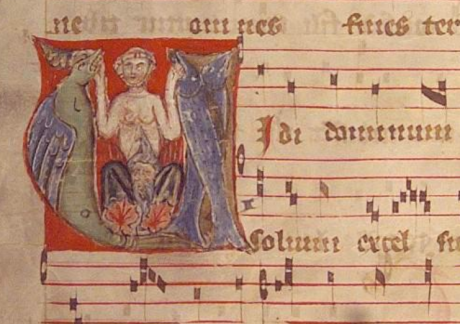 ne omnes fines ter
Idi dominum
Solium excel su